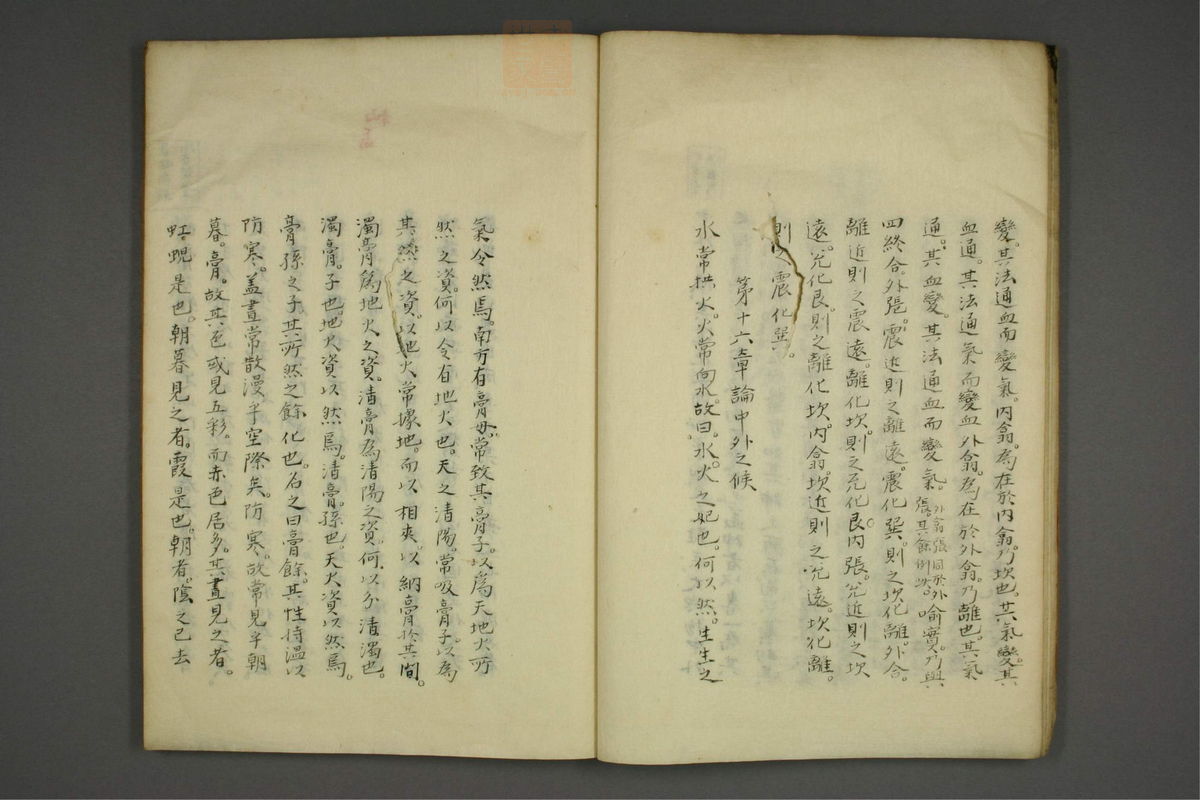 變。其法通血而變氣。内翕。爲在於内翕。乃坎也。其氣變。其
血通。其法通氣而變血外翕。爲在於外翕。乃離也。其氣
通。其血變。其法通血而變氣。外翕張同於外張。其餘例此。喻實。乃與
四終合。外張。震近則之離遠。震化巽。則之坎化離。外合。
離近則之震遠。離化坎。則之兌化艮。内張。兌近則之坎
遠。兌化艮。則之離化坎。内翕。坎近則之兌遠。坎化離。
則之震化巽。
第十六章論中外之候
水常拱火。火常向水。故曰。水火之妃也。何以然。生生之
氣令然焉。南方有膏母。常致其膏子。以爲天地火所
然之資。何以令有地火也。天之清陽。常吸膏子。以爲
其然之資。以地火常壤地。而以相夾。以納膏於其間。
濁膏爲地火之資。清膏爲清陽之資。何以分清濁也。
濁膏。子也。地火資以然焉。清膏。孫也。天火資以然焉。
膏孫之子。其所然之餘化也。名之曰膏餘。其性持温以
防寒。蓋晝常散漫乎空際矣。防寒。故常見乎朝
暮。膏。故其色或見五彩。而赤色居多。其晝見之者。
虹蜺是也。朝暮見之者。霞是也。朝者。陰之已去